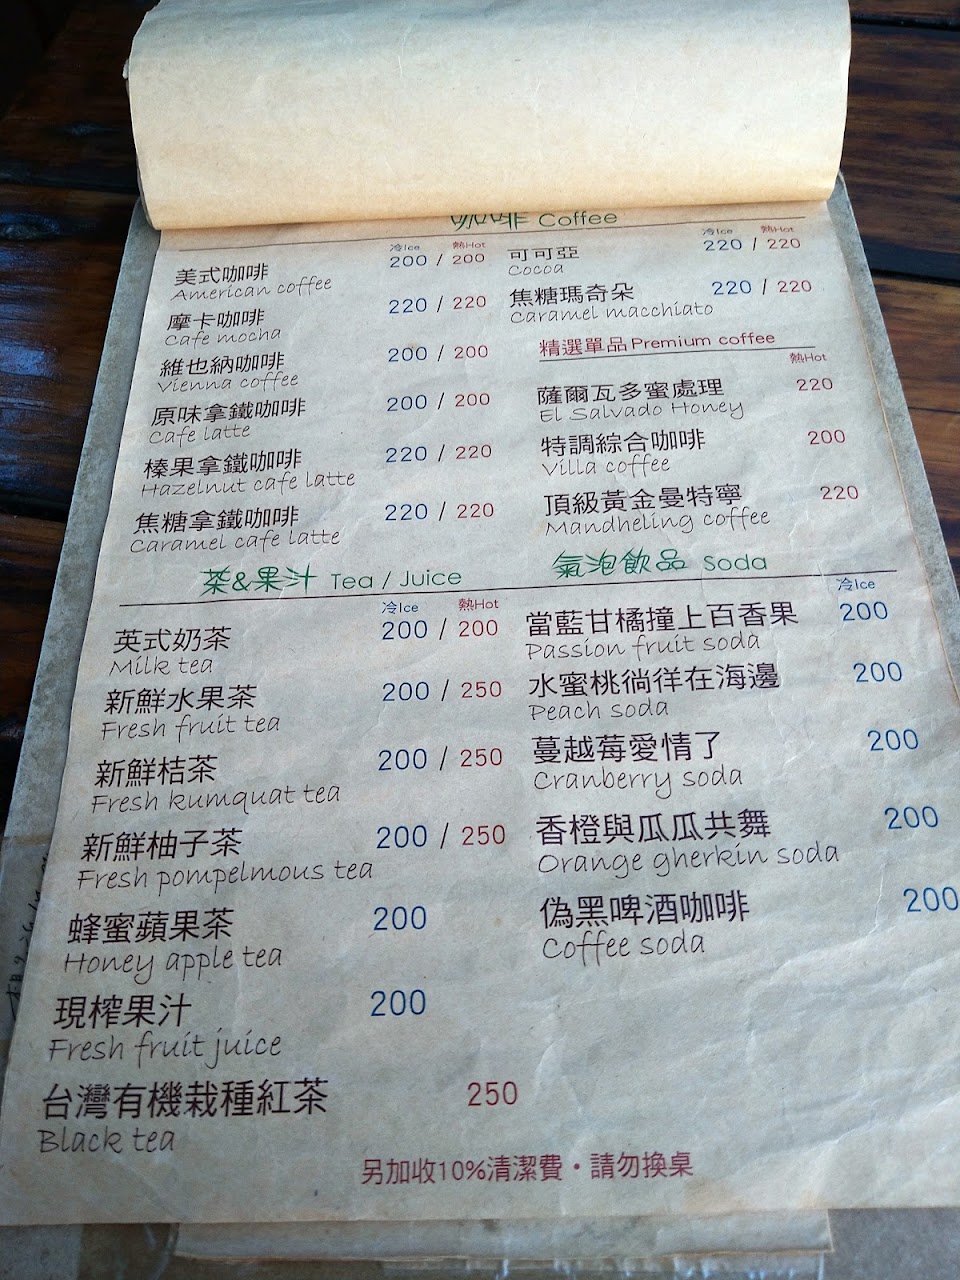 咖啡 Coffee
冷Ice 熱Hot
美式咖啡 200 / 200
American coffee
摩卡咖啡 220 / 220
Cafe mocha
維也納咖啡 200 / 200
Vienna coffee
原味拿鐵咖啡 200 / 200
Cafe latte
榛果拿鐵咖啡 220 / 220
Hazelnut cafe latte
焦糖拿鐵咖啡 220 / 220
Caramel cafe latte
冷Ice 熱Hot
可可亞 220 / 220
Cocoa
焦糖瑪奇朵 220 / 220
Caramel macchiato
精選單品Premium coffee
熱Hot
薩爾瓦多蜜處理 220
El Salvado Honey
特調綜合咖啡 200
Villa coffee
頂級黃金曼特寧 220
Mandheling coffee
茶&果汁 Tea / Juice
冷Ice 熱Hot
英式奶茶 200 / 200
Milk tea
新鮮水果茶 200 / 250
Fresh fruit tea
新鮮桔茶 200 / 250
Fresh kumquat tea
新鮮柚子茶 200 / 250
Fresh pompelmous tea
蜂蜜蘋果茶 200
Honey apple tea
現榨果汁 200
Fresh fruit juice
台灣有機栽種紅茶 250
Black tea
氣泡飲品 Soda
冷Ice
當藍甘橘撞上百香果 200
Passion fruit soda
水蜜桃徜徉在海邊 200
Peach soda
蔓越莓愛情了 200
Cranberry soda
香橙與瓜瓜共舞 200
Orange gherkin soda
偽黑啤酒咖啡 200
Coffee soda
另加收10%清潔費・請勿換桌